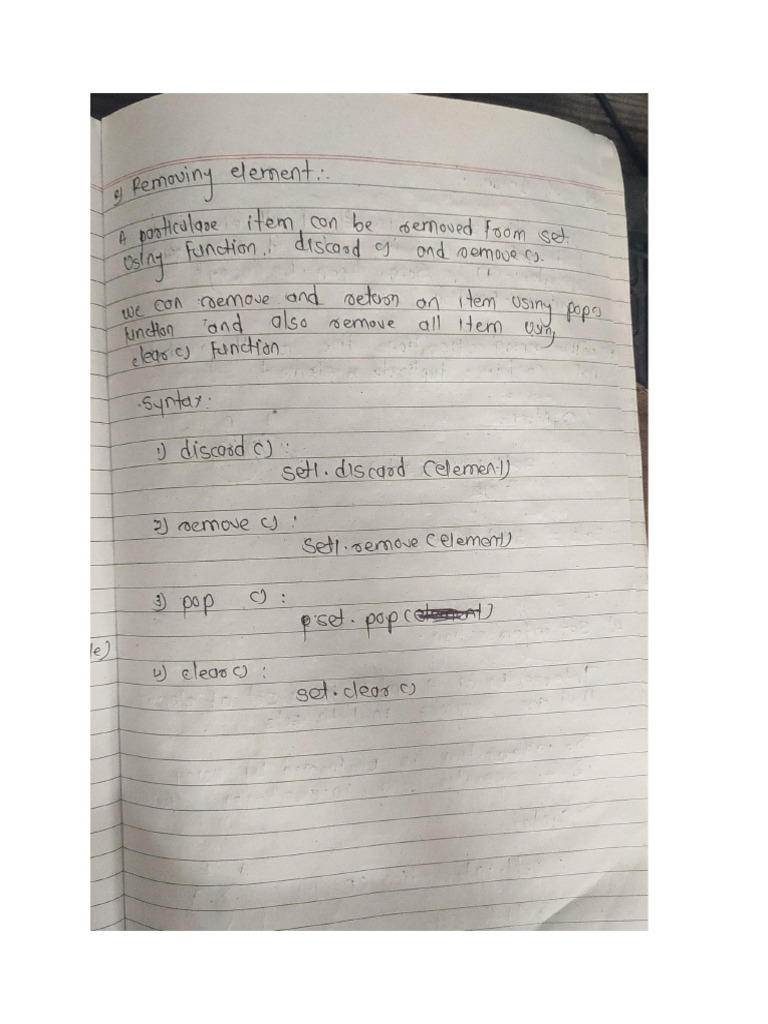 c) Removing element:.
A particulare item can be removed from set
using function, discard () and remove().
we can remove and return an item using pop()
function and also remove all item using
clear() function
.syntax.
1) discard () :
set1.discard (element)
2) remove () :
set1.remove (element)
3) pop () :
set. pop()
le)
4) clear() :
set.clear()